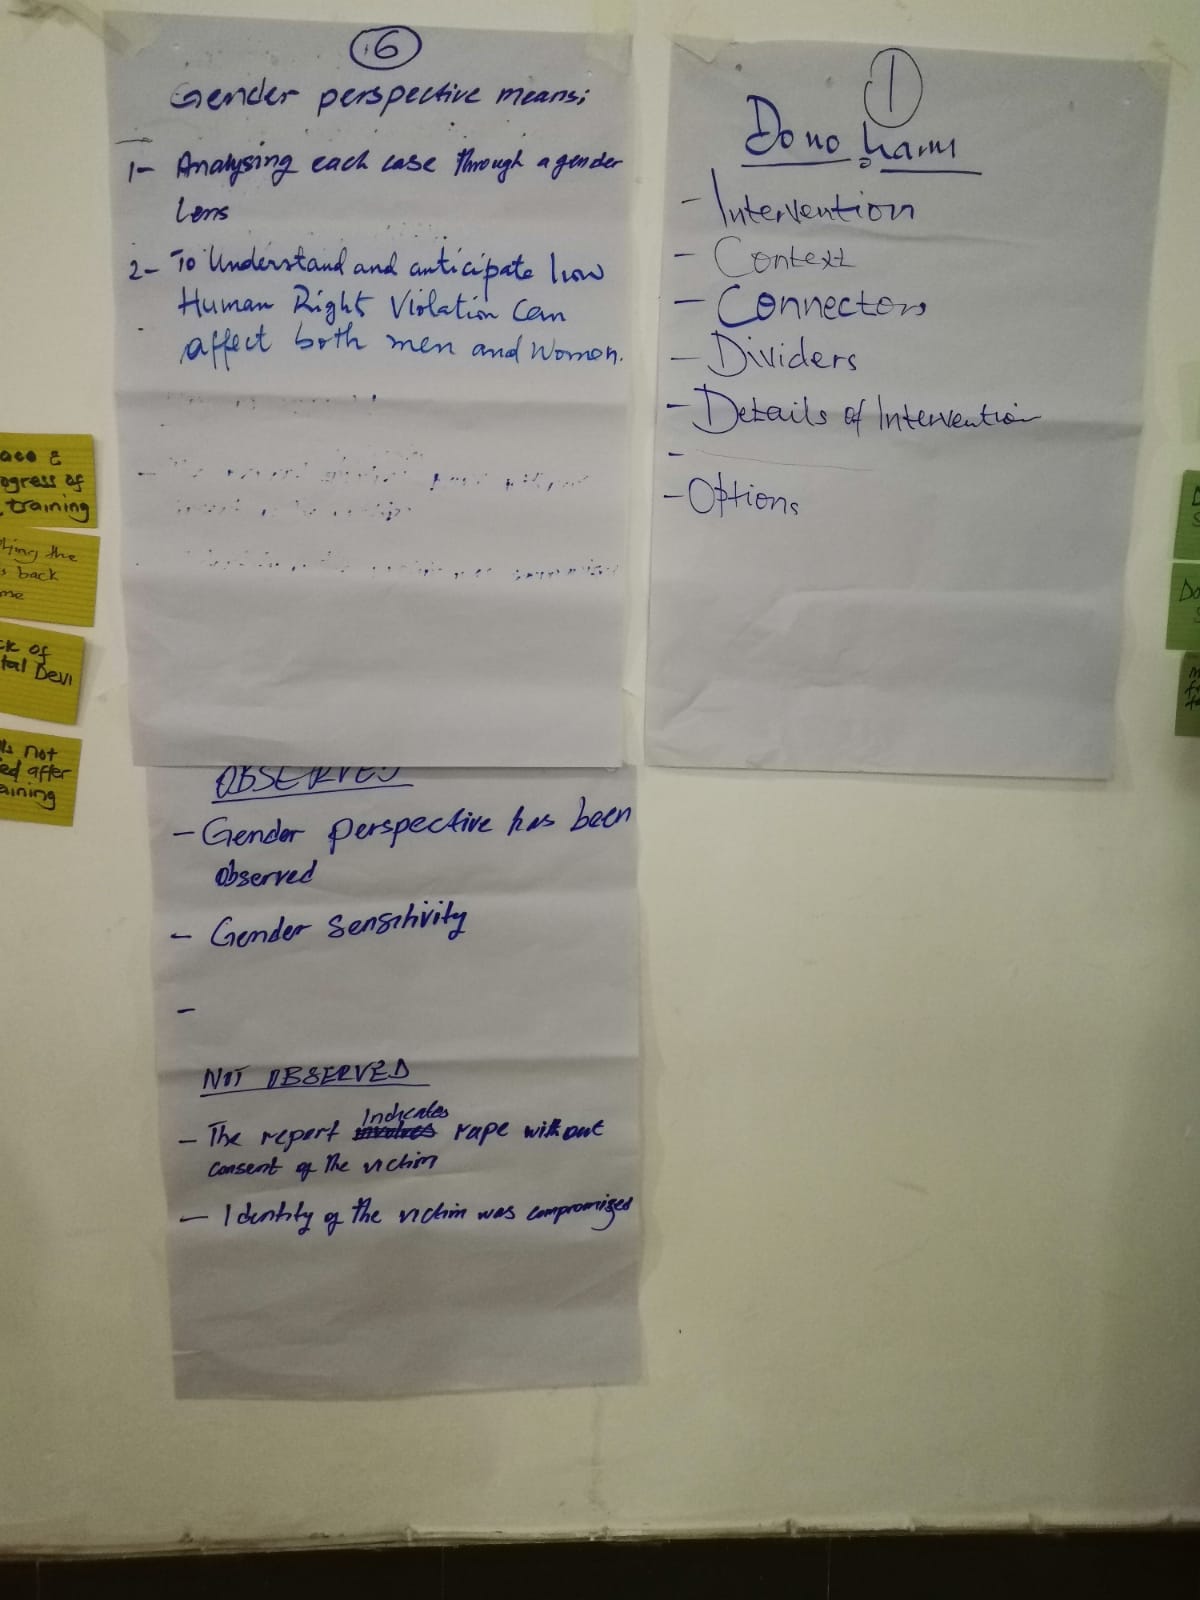 6
Gender perspective means;
1- Analysing each case through a gender
lens
2- To Understand and anticipate how
Human Right Violation Can
affect both men and Women.
OBSERVED
- Gender perspective has been
observed
- Gender Sensitivity
-
NOT OBSERVED
- The report Indicates rape without
consent of the victim
- Identity of the victim was compromised
1
Do no harm
- Intervention
- Context
- Connectors
- Dividers
- Details of Intervention
-
- Options
ogress of
training
the
back
me
of
Devi
not
after